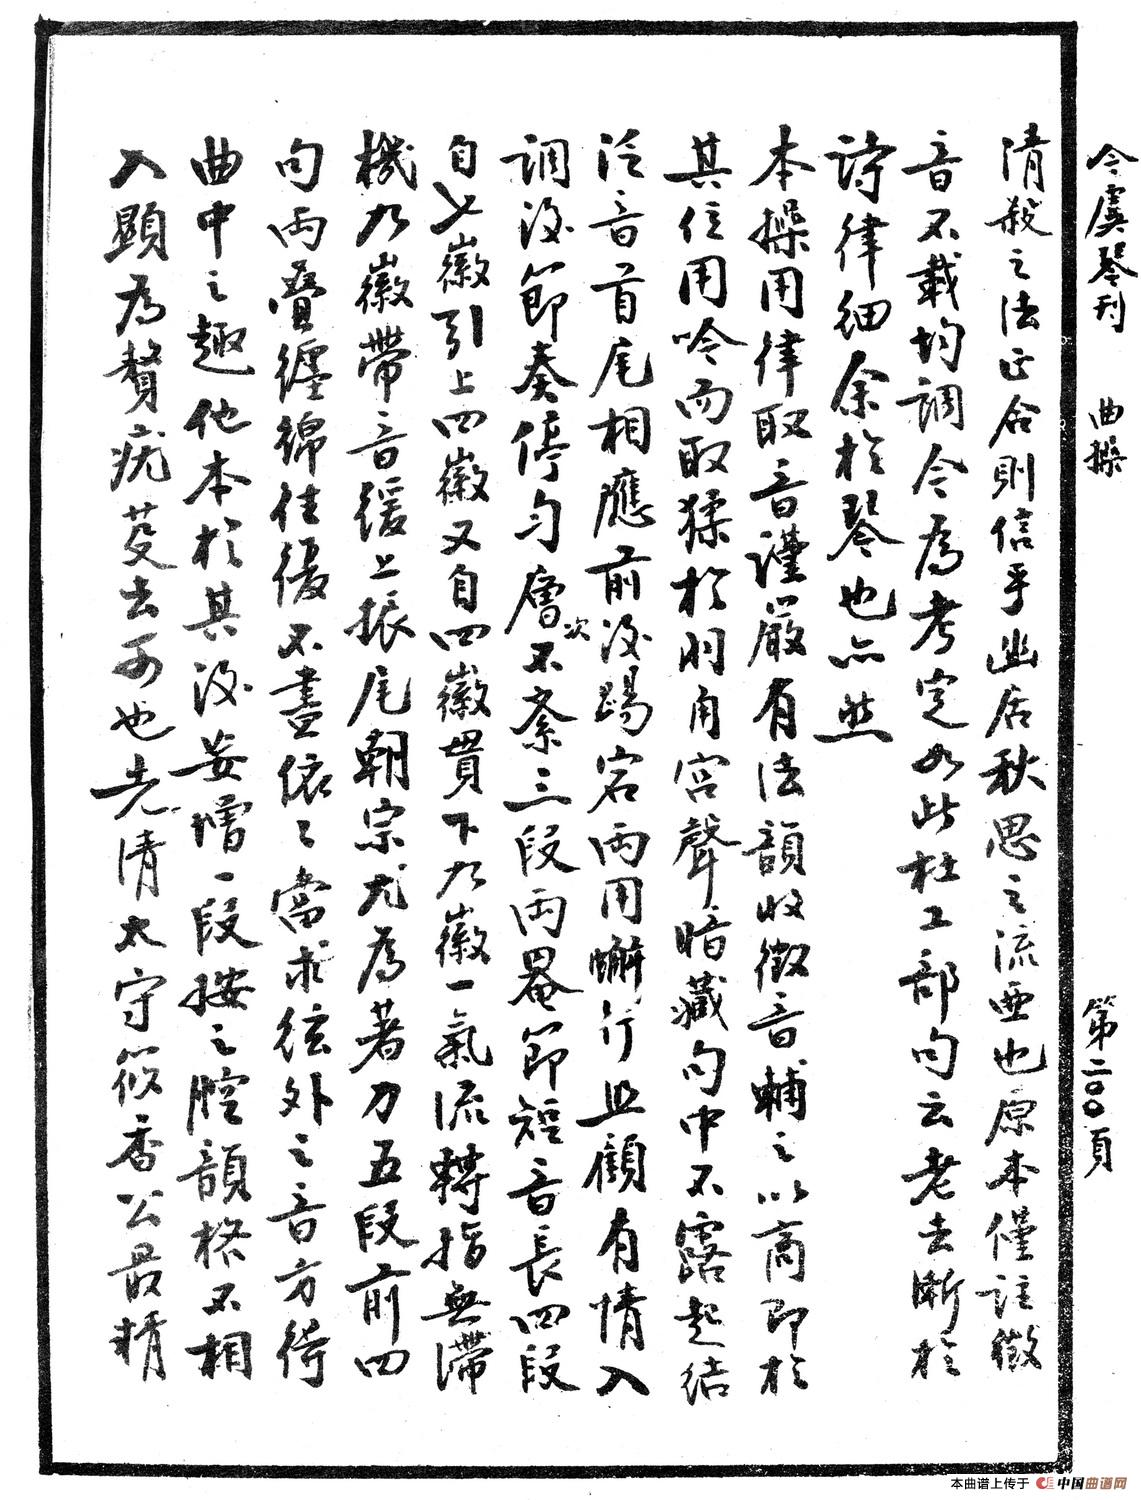 今虞琴刊 曲操 第二〇〇頁
清殺之法正合則信乎幽居秋思之流亜也原本僅註徵
音不載均調今為考定如此杜工部句云老去漸於
詩律細余於琴也亦然
本操用律取音謹嚴有法韻收徵音輔之以商即於
其位用吟而取猱於羽角宮聲暗藏句中不露起結
泛音首尾相應前後踢宕兩用蠏行且顧有情入
調後節奏停勻層次不紊三段兩罨節短音長四段
自七徽引上四徽又自四徽貫下九徽一氣流轉指無滯
機九徽帶音緩上振尾朝宗尤為著力五段前四
句兩疊纏綿往復不盡依〻當求絃外之音方得
曲中之趣他本於其後妄增一段按之腔韻格不相
入顯為贅疣芟去可也先清太守筱香公最精
本曲谱上传于 中国曲谱网